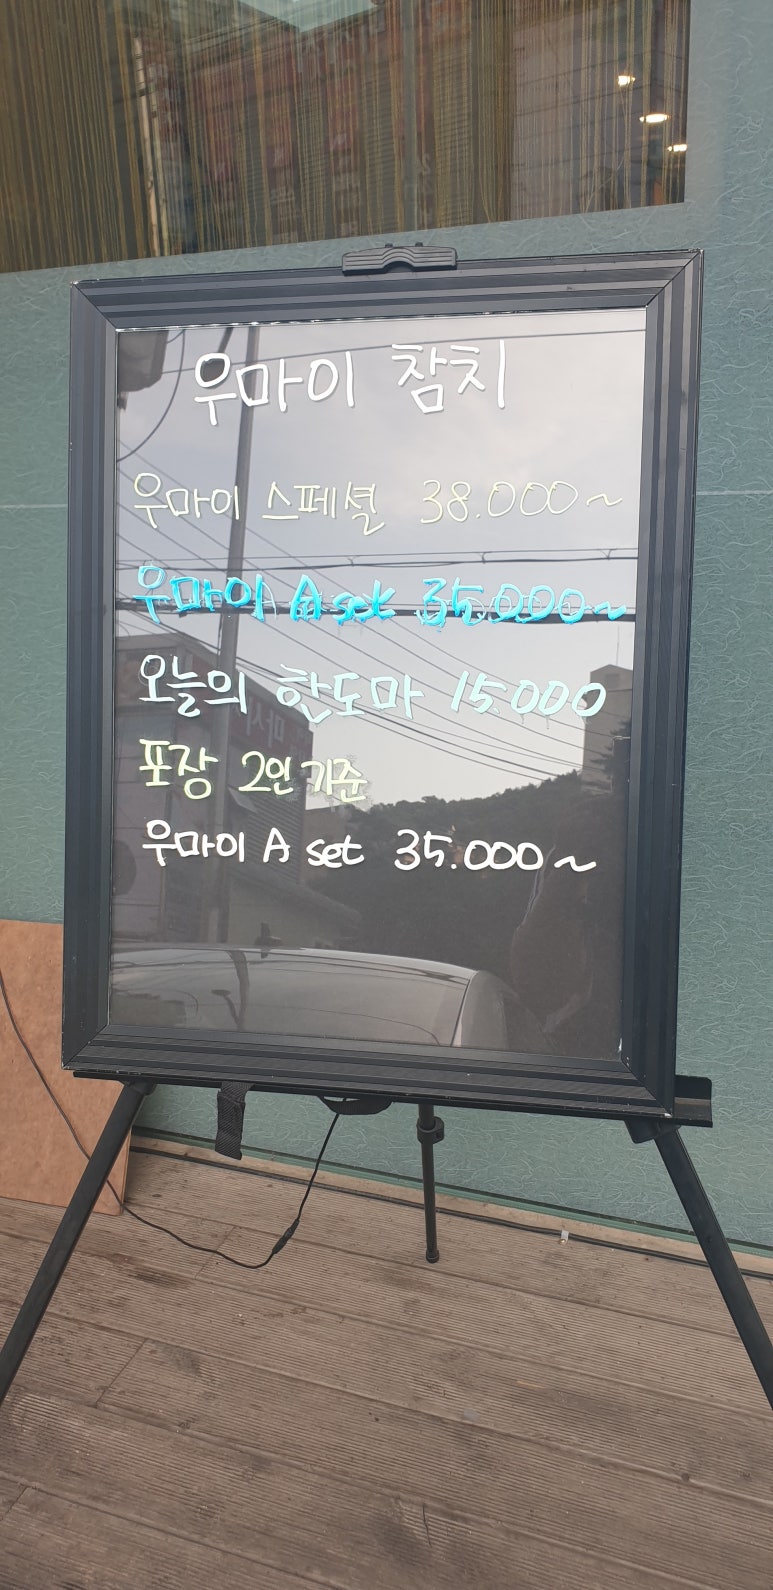 우마이 참치
우마이 스페셜 38.000~
우마이 A set 35.000~
오늘의 한도마 15.000
포장 2인 기준
우마이 A set 35.000~